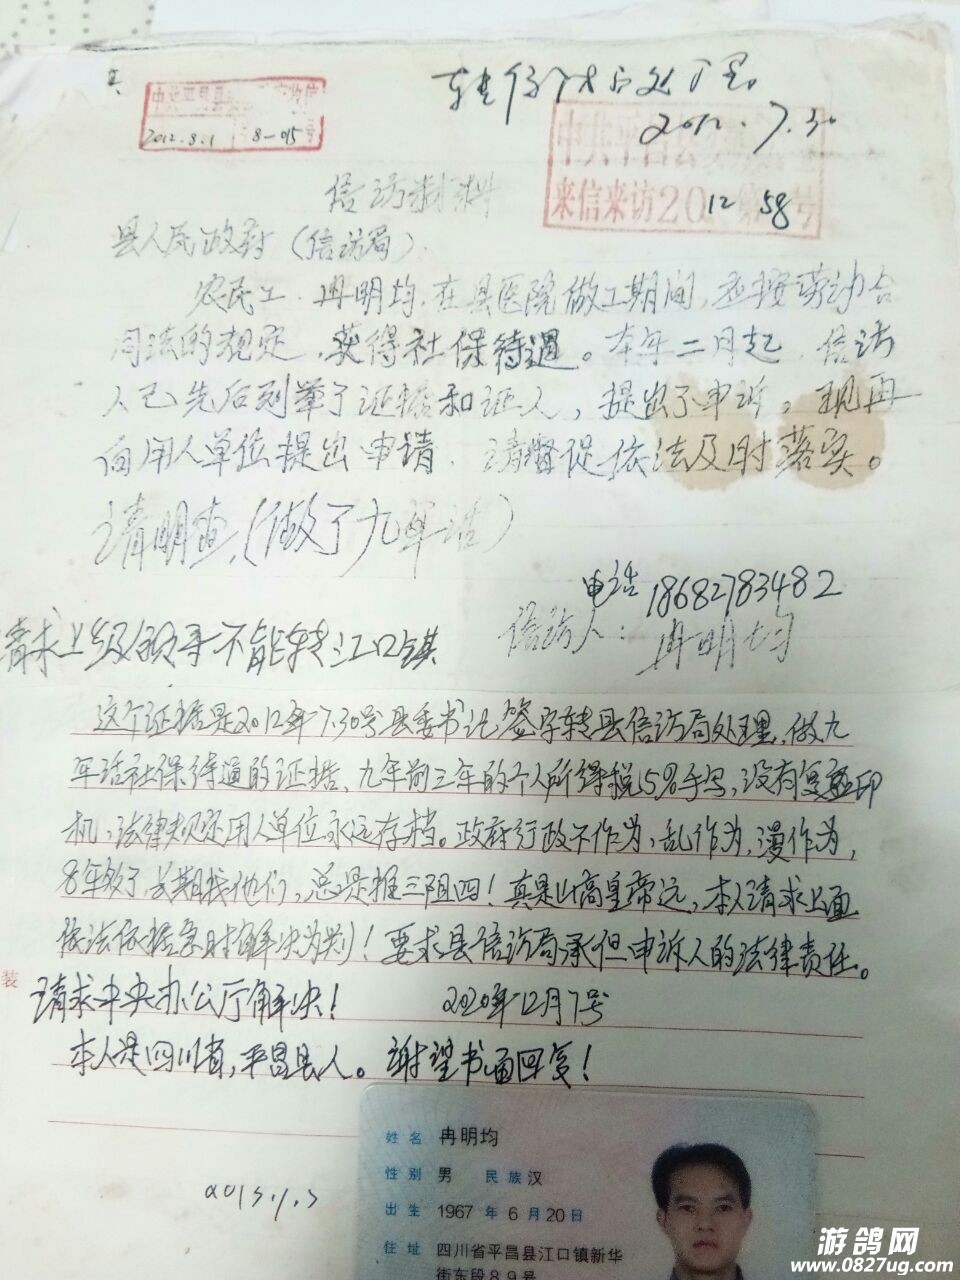 转信访局处理
2012.7.30
2012.8.1 8-015
来信来访2012第58号
信访材料
县人民政府（信访局）.
农民工.冉明均.在县医院做工期间,应按劳动合
同法的规定,获得社保待遇。本年二月起.信访
人已先后列举了证据和证人,提出了申诉,现再
向用人单位提出申请.请督促依法及时落实。
请明查.(做了九年活)
电话18682783482
信访人:冉明均
请求上级领导不能转江口镇
这个证据是2012年7.30号县委书记签字转县信访局处理,做九
年活社保待遇的证据,九年前三年的个人所得税5%手写,没有复印
机,法律规定用人单位永远存档。政府行政不作为,乱作为,漫作为,
8年致了长期找他们,总是推三阻四!真是山高皇帝远,本人请求上面
依法依据急时解决为判!要求县信访局承但申诉人的法律责任。
装
请求中央办公厅解决! 2020年12月7号
本人是四川省,平昌县人。谢望书面回复!
姓名 冉明均
性别 男 民族 汉
出生 1967 年 6 月 20 日
住址 四川省平昌县江口镇新华
街东段89号
游鸽网
www.0827ug.com